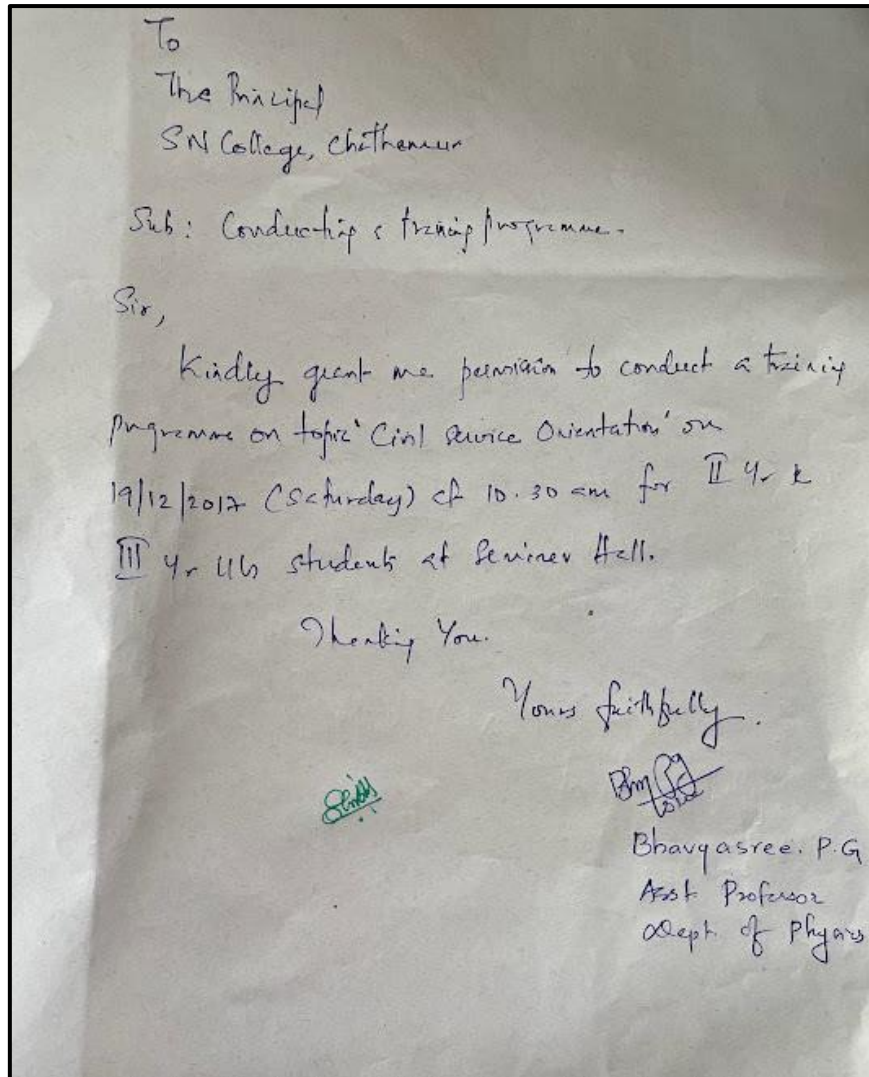 To
The Principal
SN College, Chathannur
Sub: Conducting a training programme.
Sir,
Kindly grant me permission to conduct a training
programme on topic 'Civil Service Orientation' on
19/12/2017 (Saturday) at 10.30 am for II Yr &
III Yr UG students at Seminar Hall.
Thanking You.
Yours faithfully.
Bhavyasree. P.G
Asst Professor
Dept. of Physics